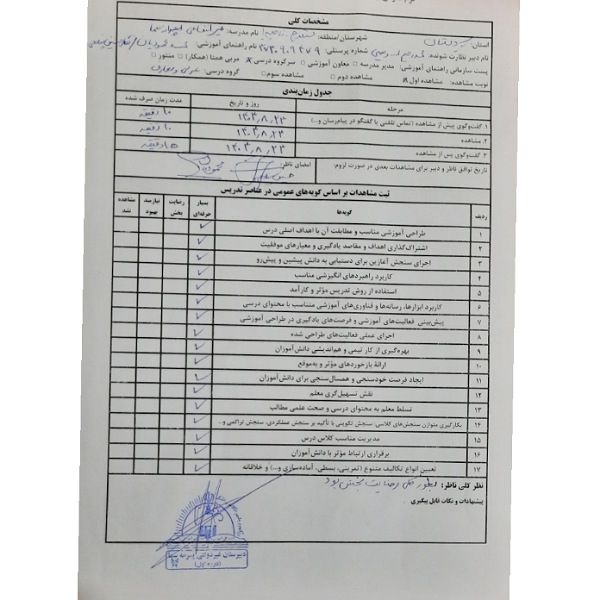 مشخصات کلی
استان: کردستان شهرستان/منطقه: نام مدرسه:
نام دبیر مشاهده شونده: شماره پرسنلی: ۲۷۳۰۹۰۹۳۷۹ نام راهنمای آموزشی:
پست سازمانی راهنمای آموزشی: مدیر مدرسه ○ معاون آموزشی ○ سرگروه درسی مربی همتا (همکار) ○ منتور ○
نوبت مشاهده: مشاهده اول مشاهده دوم ○ مشاهده سوم ○ گروه درسی:
جدول زمان‌بندی
مرحله روز و تاریخ مدت زمان صرف شده
۱. گفت‌وگوی پیش از مشاهده (تماس تلفنی یا گفتگو در پیام‌رسان و...) ۱۴۰۳٫۸٫۲۳ ۱۰ دقیقه
۲. مشاهده ۱۴۰۳٫۸٫۲۳ ۱۰ دقیقه
۳. گفت‌وگوی پس از مشاهده ۱۴۰۳٫۸٫۲۳ دقیقه
تاریخ توافق ناظر و دبیر برای مشاهدات بعدی در صورت لزوم: امضای ناظر:
ثبت مشاهدات بر اساس گویه‌های عمومی در عناصر تدریس
ردیف گویه‌ها بسیار حرفه‌ای رضایت بخش نیازمند بهبود مشاهده نشد
۱ طراحی آموزشی مناسب و مطابقت آن با اهداف اصلی درس ✓
۲ اشتراک‌گذاری اهداف و مقاصد یادگیری و معیارهای موفقیت ✓
۳ اجرای سنجش آغازین برای دستیابی به دانش پیشین و پیش‌رو ✓
۴ کاربرد راهبردهای انگیزشی مناسب ✓
۵ استفاده از روش تدریس مؤثر و کارآمد ✓
۶ کاربرد ابزارها، رسانه‌ها و فناوری‌های آموزشی متناسب با محتوای درسی ✓
۷ پیش‌بینی فعالیت‌های آموزشی و فرصت‌های یادگیری در طراحی آموزشی ✓
۸ اجرای عملی فعالیت‌های طراحی شده ✓
۹ بهره‌گیری از کار تیمی و هم‌اندیشی دانش‌آموزان ✓
۱۰ ارائهٔ بازخوردهای مؤثر و به‌موقع ✓
۱۱ ایجاد فرصت خودسنجی و همسال‌سنجی برای دانش‌آموزان ✓
۱۲ نقش تسهیل‌گری معلم ✓
۱۳ تسلط معلم به محتوای درسی و صحت علمی مطالب ✓
۱۴ بکارگیری متوازن سنجش‌های کلاسی: سنجش تکوینی با تأکید بر سنجش عملکردی، سنجش تراکمی و... ✓
۱۵ مدیریت مناسب کلاس درس ✓
۱۶ برقراری ارتباط مؤثر با دانش‌آموزان ✓
۱۷ تعیین انواع تکالیف متنوع (تمرینی، بسطی، آماده‌سازی و...) و خلاقانه ✓
نظر کلی ناظر: بطور کل رضایت بخش بود
پیشنهادات و نکات قابل پیگیری:
دبیرستان غیردولتی
(دوره اول)